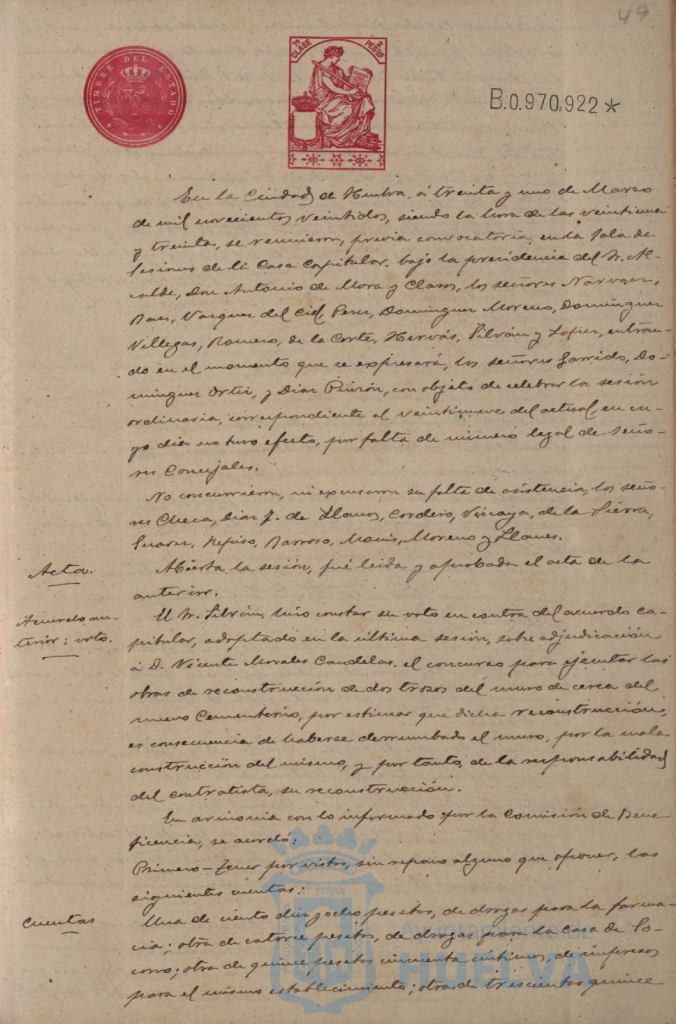 49
TIMBRE DEL ESTADO
7ª CLASE 2 PESETAS
B.0.970,922*
En la Ciudad de Huelva, á treinta y uno de Marzo
de mil novecientos veintidos, siendo la hora de las veintiuna
y treinta, se reunieron, previa convocatoria, en la Sala de
Sesiones de la Casa Capitular, bajo la presidencia del Sr. Al-
calde, Don Antonio de Mora y Claros, los señores Narvaez,
Baez, Vazquez del Cid, Perez, Dominguez Moreno, Dominguez
Villegas, Romero, de la Corte, Hervás, Silván y Lopez, entran-
do en el momento que se expresará, los señores Garrido, Do-
minguez Ortiz, y Diaz Pinzón, con objeto de celebrar la sesión
ordinaria, correspondiente al veintinueve del actual, en cu-
yo dia no tuvo efecto, por falta de número legal de Seño-
res Concejales.
No concurrieron, ni excusaron su falta de asistencia, los seño-
res Checa, Diaz F. de Llanos, Cordero, Vizcaya, de la Sierra,
Suarez, Barroso, Moreno y Llanes.
Acta.
Abierta la sesión, fué leida y aprobada el acta de la
anterior.
Acuerdo an-
terior: voto.
El Sr. Silván, hizo constar su voto en contra del acuerdo ca-
pitular, adoptado en la última sesión, sobre adjudicación
á D. Vicente Morales Candelas, el concurso para ejecutar las
obras de reconstrucción de dos trozos del muro de cerca del
nuevo Cementerio, por estimar que dicha reconstrucción,
es consecuencia de haberse derrumbado el muro, por la mala
construcción del mismo, y por tanto, de la responsabilidad
del contratista, su reconstrucción.
En armonia con lo informado por la Comisión de Bene-
ficencia, se acordó:
Primero - Tener por vistas, sin reparo alguno que oponer, las
siguientes cuentas:
Cuentas
Una de ciento diez y ocho pesetas, de drogas para la farma-
cia; otra de catorce pesetas, de drogas para la Casa de So-
corro; otra de quince pesetas cincuenta céntimos, de impresos
para el mismo establecimiento; otra de trescientas quince
TERRA
Ayuntamiento de
HUELVA